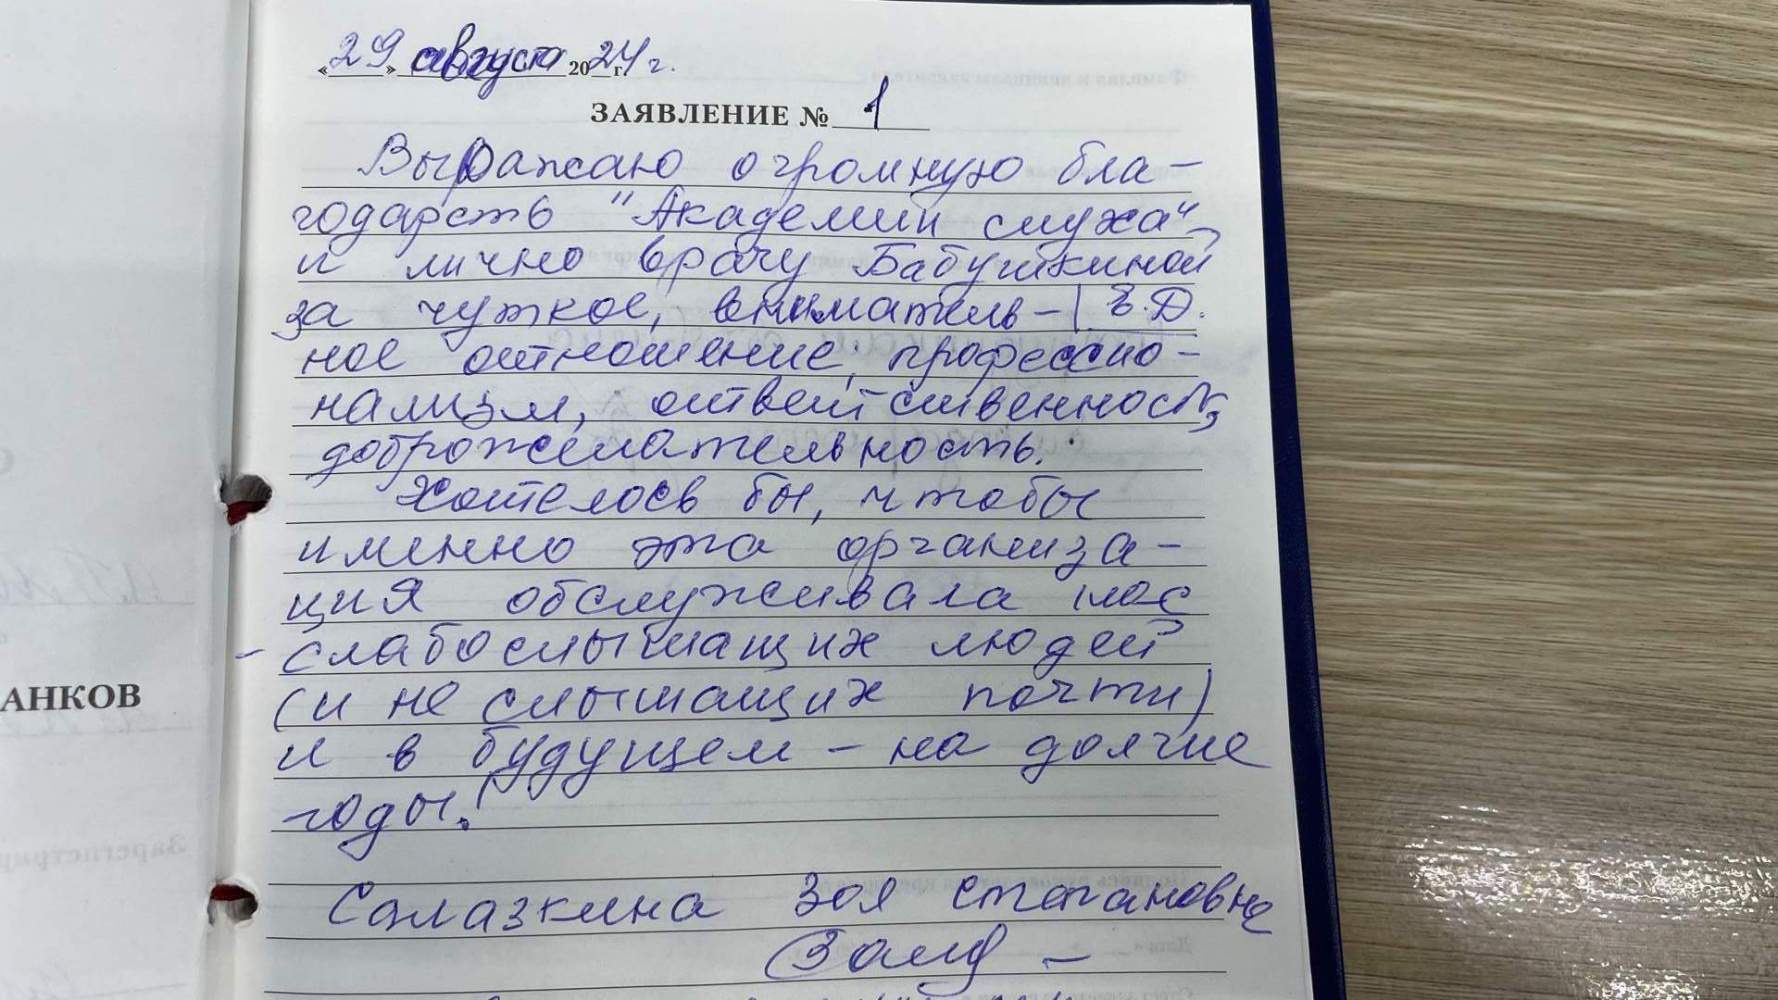 «29» августа 2024 г.
ЗАЯВЛЕНИЕ № 1
Выражаю огромную бла-
годарсть "Академии слуха"
и лично врачу Бабушкиной
за чуткое, вниматель- | Е.Д.
ное отношение, профессио-
нализм, ответственность,
доброжелательность.
Хотелось бы, чтобы
именно эта организа-
ция обслуживала нас
- слабослышащих людей
(и не слышащих почти)
и в будущем - на долгие
годы!
Салазкина Зоя Степановна
АНКОВ